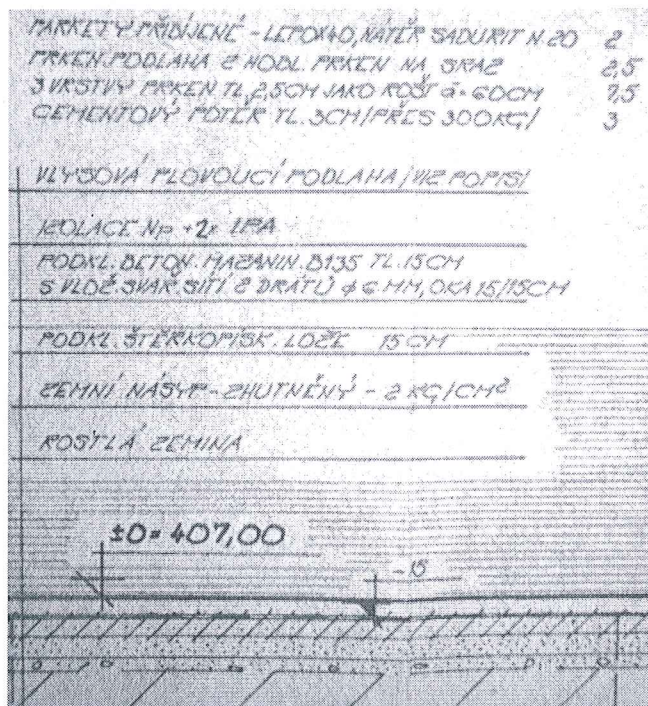 PARKETY PŘIBÍJENÉ - LEPOX40, NÁTĚR SADURIT N.20 2
PRKEN. PODLAHA Z HOBL. PRKEN NA SRAZ 2,5
3 VRSTVY PRKEN TL. 2,5CM JAKO ROŠT á-60CM 7,5
CEMENTOVÝ POTĚR TL. 3CM /PŘES 300KG/ 3
VLYSOVÁ PLOVOUCÍ PODLAHA /VIZ POPIS/
IZOLACE Np + 2x IPA
PODKL. BETON. MAZANIN. B135 TL. 15CM
S VLOŽ. SVAR. SÍTÍ Z DRÁTŮ ϕ 6 MM, OKA 15/15CM
PODKL. ŠTĚRKOPÍSK. LOŽE 15 CM
ZEMNÍ NÁSYP - ZHUTNĚNÝ - 2 KG/CM²
ROSTLÁ ZEMINA
±0=407,00
-15